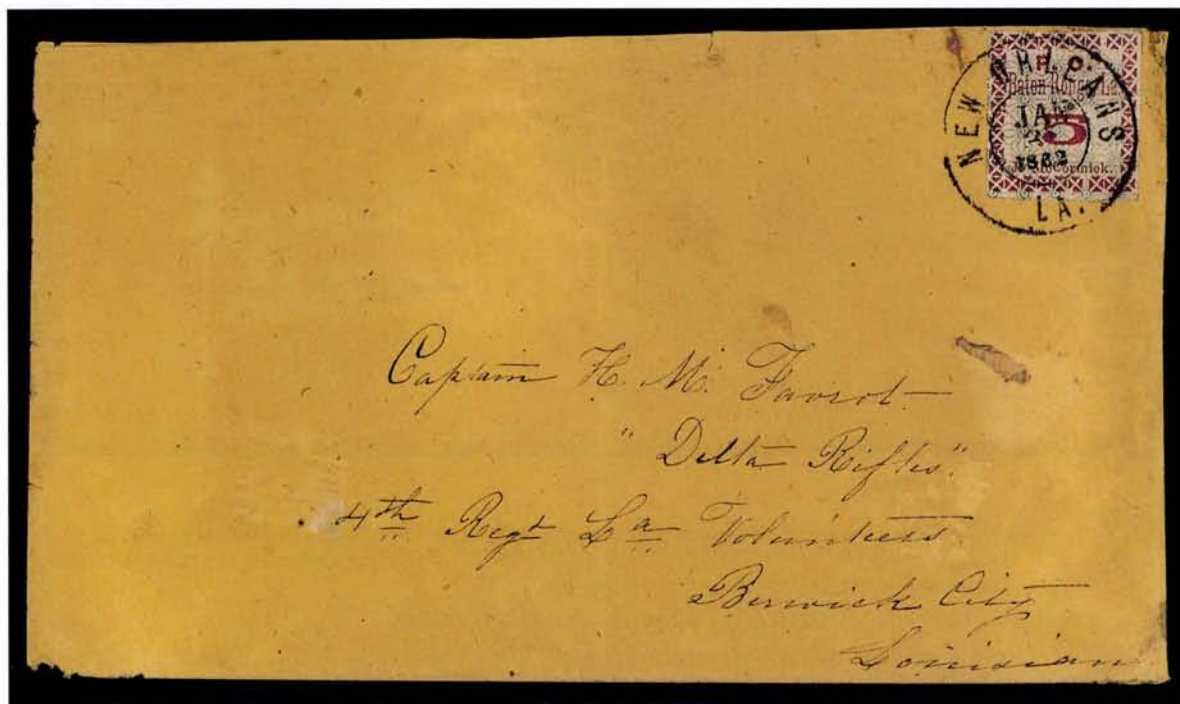 NEW ORLEANS
LA.
JAN
2
1862
P. O.
Baton Rouge, La.
5
J. McCormick.
Captain H. M. Favrot
"Delta Rifles"
4th Regt La Volunteers
Berwick City
Louisian